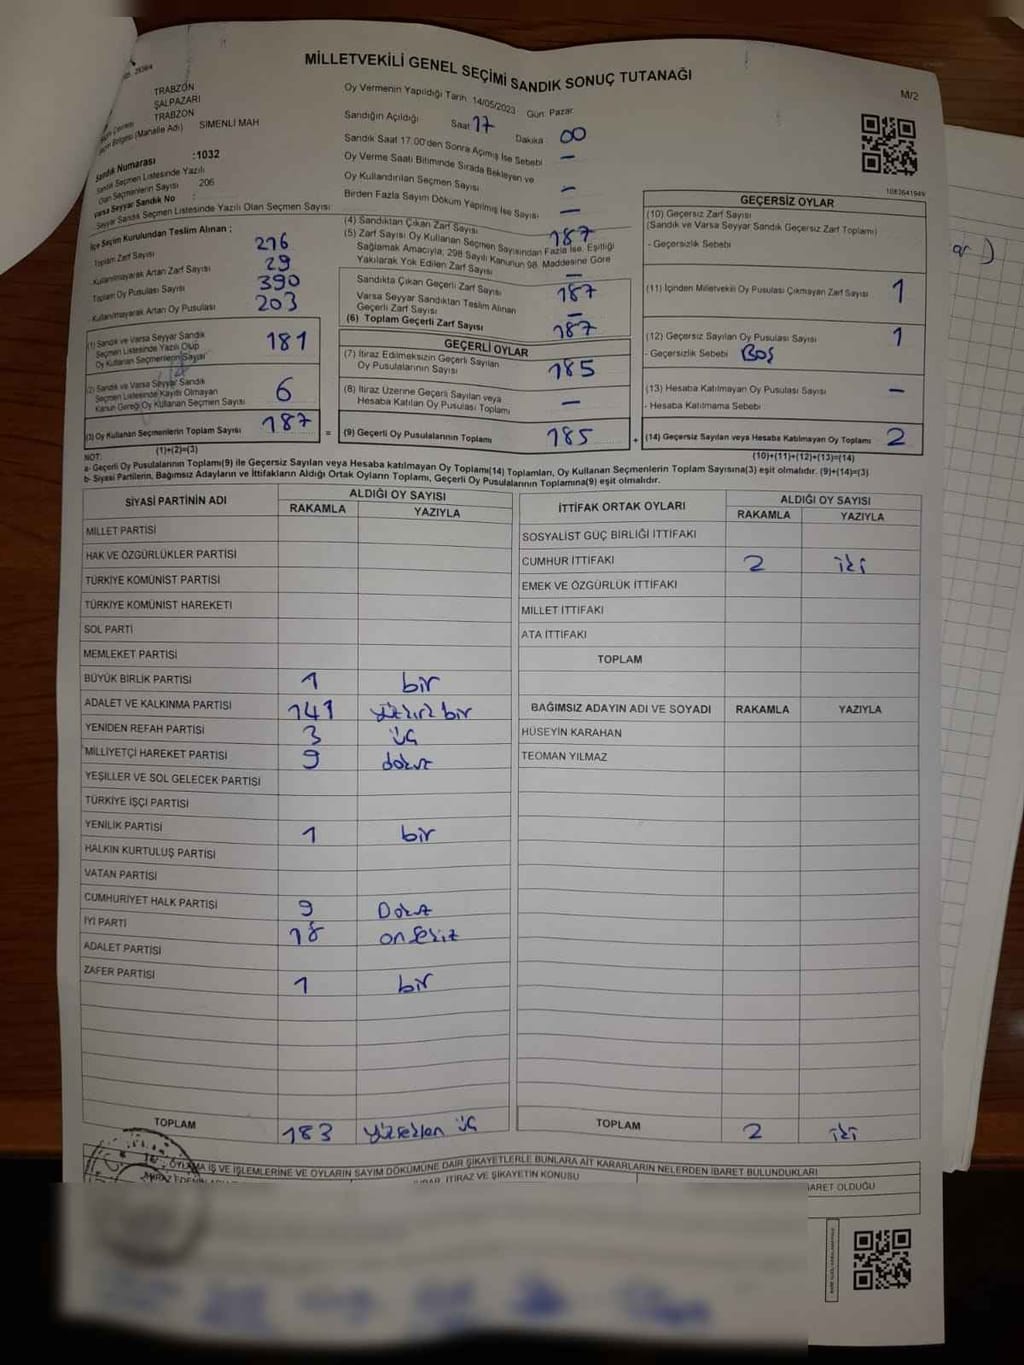 MİLLETVEKİLİ GENEL SEÇİMİ SANDIK SONUÇ TUTANAĞI
M/2
TRABZON
ŞALPAZARI
TRABZON
Bölgesi (Mahalle Adı) SİMENLİ MAH
Sandık Numarası :1032
Sandık Seçmen Listesinde Yazılı
Olan Seçmenlerin Sayısı 206
Varsa Seyyar Sandık No
Seyyar Sandık Seçmen Listesinde Yazılı Olan Seçmen Sayısı
Oy Vermenin Yapıldığı Tarih 14/05/2023 Gün: Pazar
Sandığın Açıldığı Saat 17 Dakika 00
Sandık Saat 17.00'den Sonra Açımış İse Sebebi –
Oy Verme Saati Bitiminde Sırada Bekleyen ve
Oy Kullandırılan Seçmen Sayısı –
Birden Fazla Sayım Döküm Yapılmış İse Sayısı –
1083641949
İlçe Seçim Kurulundan Teslim Alınan ;
Toplam Zarf Sayısı 216
-Kullanılmayarak Artan Zarf Sayısı 29
Toplam Oy Pusulası Sayısı 390
-Kullanılmayarak Artan Oy Pusulası 203
(1) Sandık ve Varsa Seyyar Sandık
Seçmen Listesinde Yazılı Olup
Oy Kullanan Seçmenlerin Sayısı 181
(2) Sandık ve Varsa Seyyar Sandık
Seçmen Listesinde Kayıtlı Olmayan
Kanun Gereği Oy Kullanan Seçmen Sayısı 6
(3) Oy Kullanan Seçmenlerin Toplam Sayısı 187
(1)+(2)=(3)
(4) Sandıktan Çıkan Zarf Sayısı 187
(5) Zarf Sayısı Oy Kullanan Seçmen Sayısından Fazla İse, Eşitliği
Sağlamak Amacıyla, 298 Sayılı Kanunun 98. Maddesine Göre
Yakılarak Yok Edilen Zarf Sayısı –
Sandıkta Çıkan Geçerli Zarf Sayısı 187
Varsa Seyyar Sandıktan Teslim Alınan
Geçerli Zarf Sayısı –
(6) Toplam Geçerli Zarf Sayısı 187
GEÇERLİ OYLAR
(7) İtiraz Edilmeksizin Geçerli Sayılan
Oy Pusulalarının Sayısı 185
(8) İtiraz Üzerine Geçerli Sayılan veya
Hesaba Katılan Oy Pusulası Toplamı –
= (9) Geçerli Oy Pusulalarının Toplamı 185 +
GEÇERSİZ OYLAR
(10) Geçersiz Zarf Sayısı
(Sandık ve Varsa Seyyar Sandık Geçersiz Zarf Toplamı)
- Geçersizlik Sebebi
(11) İçinden Milletvekili Oy Pusulası Çıkmayan Zarf Sayısı 1
(12) Geçersiz Sayılan Oy Pusulası Sayısı 1
- Geçersizlik Sebebi Boş
(13) Hesaba Katılmayan Oy Pusulası Sayısı –
- Hesaba Katılmama Sebebi
(14) Geçersiz Sayılan veya Hesaba Katılmayan Oy Toplamı 2
(10)+(11)+(12)+(13)=(14)
NOT:
a- Geçerli Oy Pusulalarının Toplamı(9) ile Geçersiz Sayılan veya Hesaba katılmayan Oy Toplamı(14) Toplamları, Oy Kullanan Seçmenlerin Toplam Sayısına(3) eşit olmalıdır. (9)+(14)=(3)
b- Siyasi Partilerin, Bağımsız Adayların ve İttifakların Aldığı Ortak Oyların Toplamı, Geçerli Oy Pusulalarının Toplamına(9) eşit olmalıdır.
SİYASİ PARTİNİN ADI ALDIĞI OY SAYISI
RAKAMLA YAZIYLA
MİLLET PARTİSİ
HAK VE ÖZGÜRLÜKLER PARTİSİ
TÜRKİYE KOMÜNİST PARTİSİ
TÜRKİYE KOMÜNİST HAREKETİ
SOL PARTİ
MEMLEKET PARTİSİ
BÜYÜK BİRLİK PARTİSİ 1 bir
ADALET VE KALKINMA PARTİSİ 141 yüzkırk bir
YENİDEN REFAH PARTİSİ 3 üç
MİLLİYETÇİ HAREKET PARTİSİ 9 dokuz
YEŞİLLER VE SOL GELECEK PARTİSİ
TÜRKİYE İŞÇİ PARTİSİ
YENİLİK PARTİSİ 1 bir
HALKIN KURTULUŞ PARTİSİ
VATAN PARTİSİ
CUMHURİYET HALK PARTİSİ 9 Dokuz
İYİ PARTİ 18 onsekiz
ADALET PARTİSİ
ZAFER PARTİSİ 1 bir
TOPLAM 183 yüzseksen üç
İTTİFAK ORTAK OYLARI ALDIĞI OY SAYISI
RAKAMLA YAZIYLA
SOSYALİST GÜÇ BİRLİĞİ İTTİFAKI
CUMHUR İTTİFAKI 2 iki
EMEK VE ÖZGÜRLÜK İTTİFAKI
MİLLET İTTİFAKI
ATA İTTİFAKI
TOPLAM
BAĞIMSIZ ADAYIN ADI VE SOYADI RAKAMLA YAZIYLA
HÜSEYİN KARAHAN
TEOMAN YILMAZ
TOPLAM 2 iki
OYLAMA İŞ VE İŞLEMLERİNE VE OYLARIN SAYIM DÖKÜMÜNE DAİR ŞİKAYETLERLE BUNLARA AİT KARARLARIN NELERDEN İBARET BULUNDUKLARI
İTİRAZ VE ŞİKAYETİN KONUSU
OLDUĞU